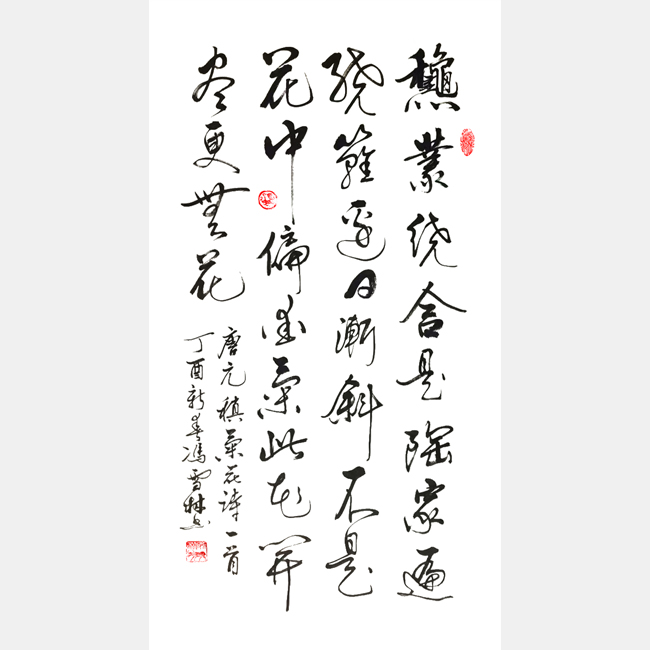 龝叢绕舍是陶家遍
绕籬邊日漸斜不是
花中偏愛菊此花開
盡更無花
唐元稹菊花詩一首
丁酉新春馮雪林书